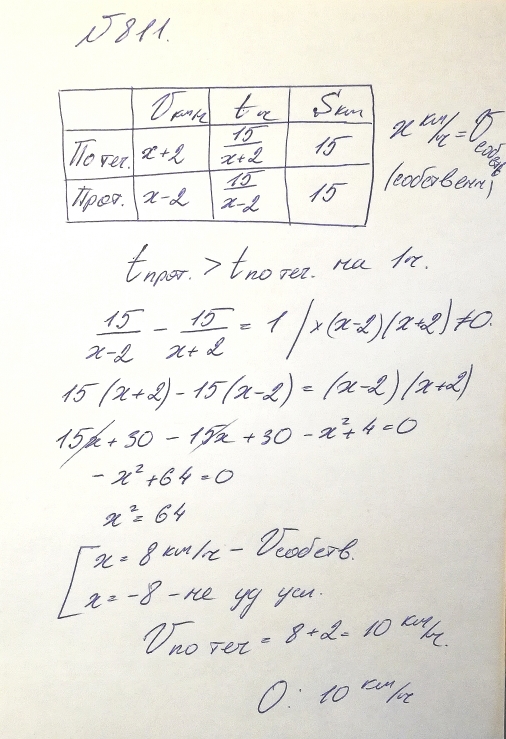 №811.
Vкм/ч tч Sкм
По теч. x+2 15/(x+2) 15
Прот. x-2 15/(x-2) 15
x км/ч = Vсобств
(собственн)
tпрот. > tпо теч. на 1ч.
15/(x-2) - 15/(x+2) = 1 / ×(x-2)(x+2)≠0.
15(x+2)-15(x-2)=(x-2)(x+2)
15x+30-15x+30-x²+4=0
-x²+64=0
x²=64
x=8 км/ч - Vсобств.
x=-8 - не уд усл.
Vпо теч = 8+2=10 км/ч.
О: 10 км/ч